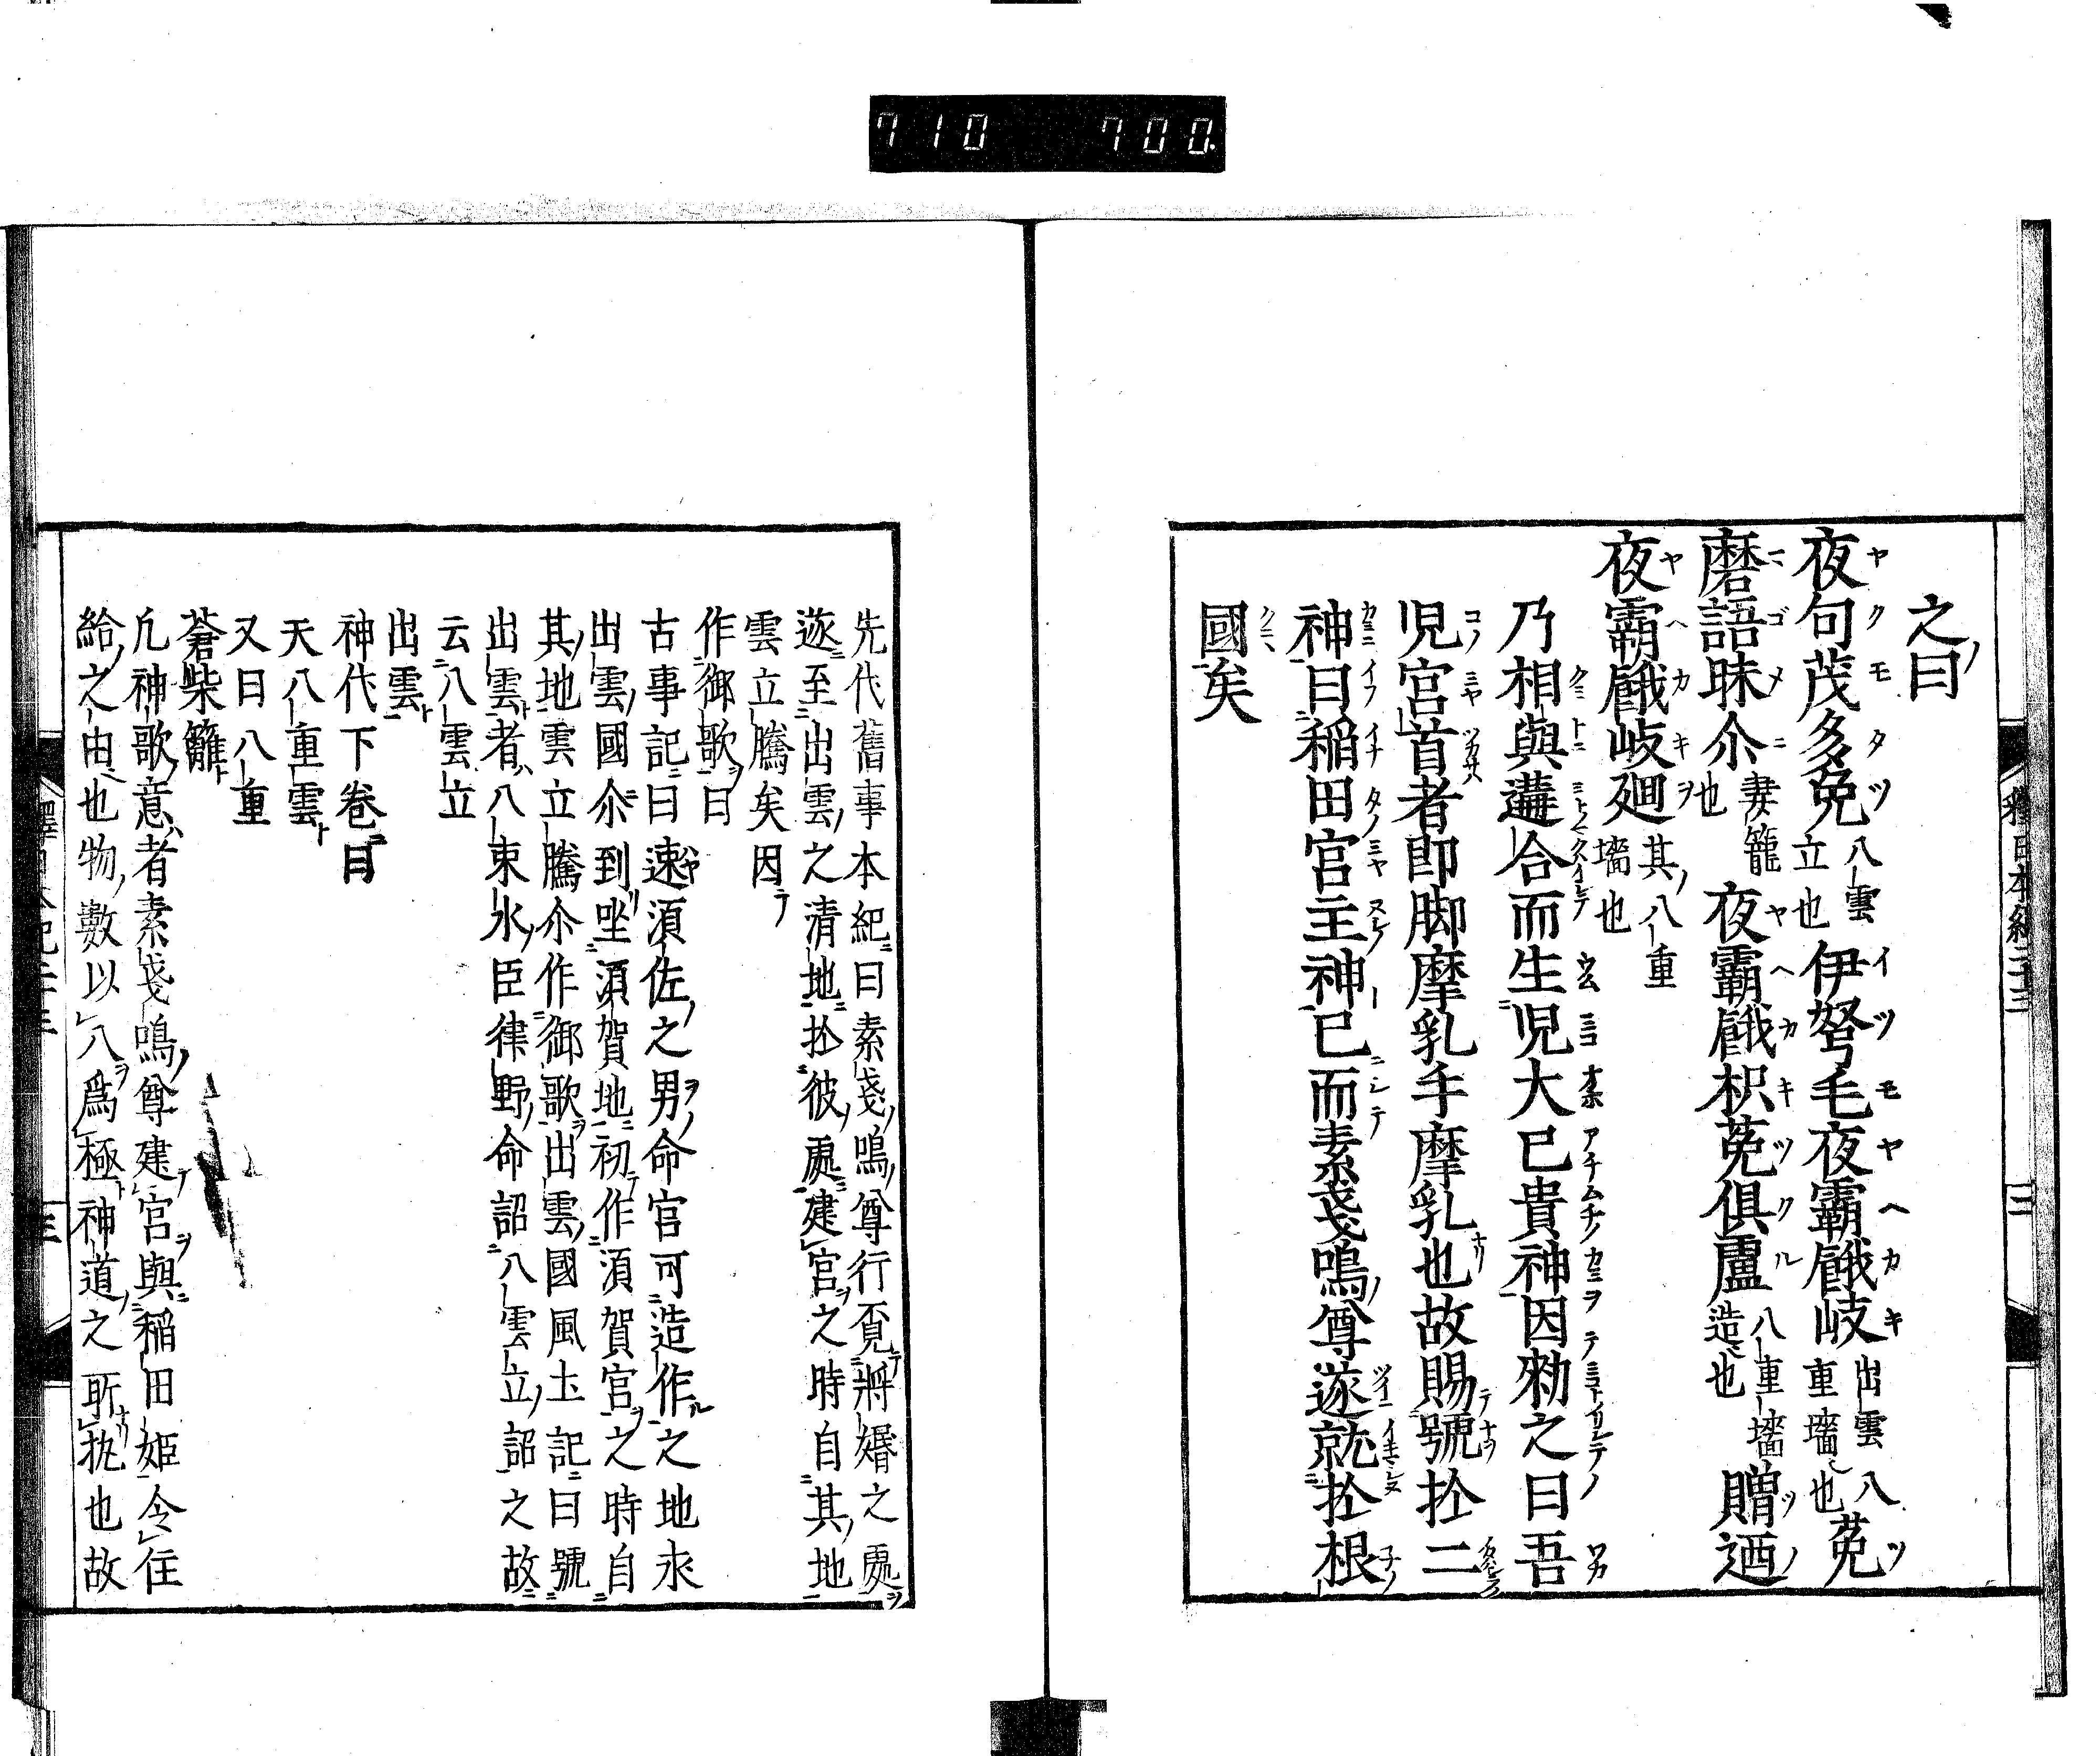 710 700.
之曰
夜句茂多兔八雲立也伊弩毛夜霸餓岐出雲八重墻也菟
磨語昧尒妻籠也夜霸餓枳菟俱盧八重墻造也贈迺
夜霸餓岐廻其八重墻也
乃相與遘合而生児大已貴神因勑之曰吾
児宮首者即脚摩乳手摩乳也故賜號扵二
神曰稲田宮主神已而素戔嗚尊遂就扵根
國矣
先代舊事本紀曰素戔嗚尊行覓將婚之處
遂至出雲之清地扵彼處建宮之時自其地
雲立騰矣因
作御歌曰
古事記曰速須佐之男命宮可造作之地求
出雲國尒到坐須賀地初作須賀宮之時自
其地雲立騰尒作御歌出雲國風土記曰號
出雲者八束水臣律野命詔八雲立詔之故
云八雲立
出雲
神代下巻曰
天八重雲
又曰八重
蒼柴籬
凢神歌意者素戔嗚尊建宮與稲田姫令住
給之由也物數以八爲極神道之所執也故